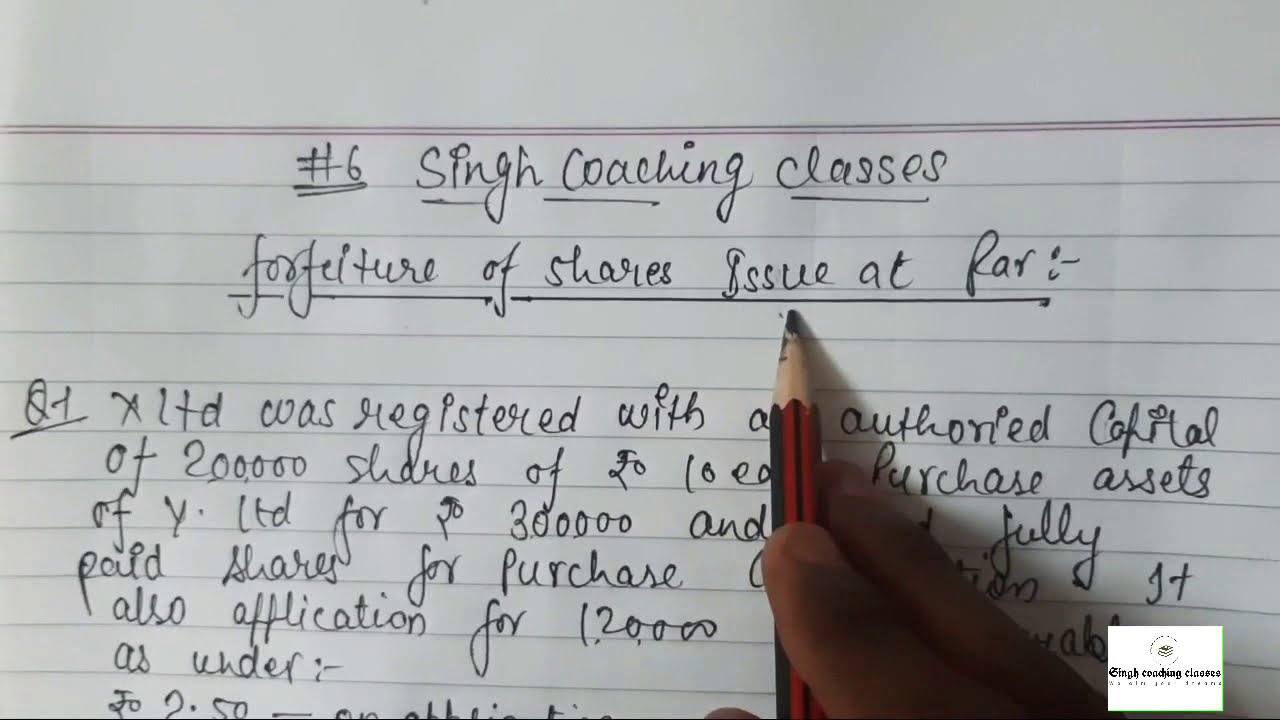 #6 Singh Coaching Classes
forfeiture of shares Issue at Par :-
Q1 X Ltd was registered with authoried Capital
of 200,000 shares of ₹ 10 Purchase assets
of Y. Ltd for ₹ 300000 and fully
paid shares for Purchase It
also application for 1,20,000
as under :-
₹ 2.50 — on application
Singh coaching classes
We aim your dreams